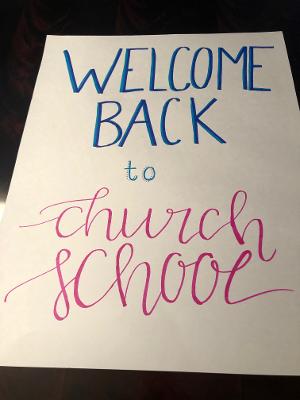 WELCOME
BACK
to
church
SCHOOL